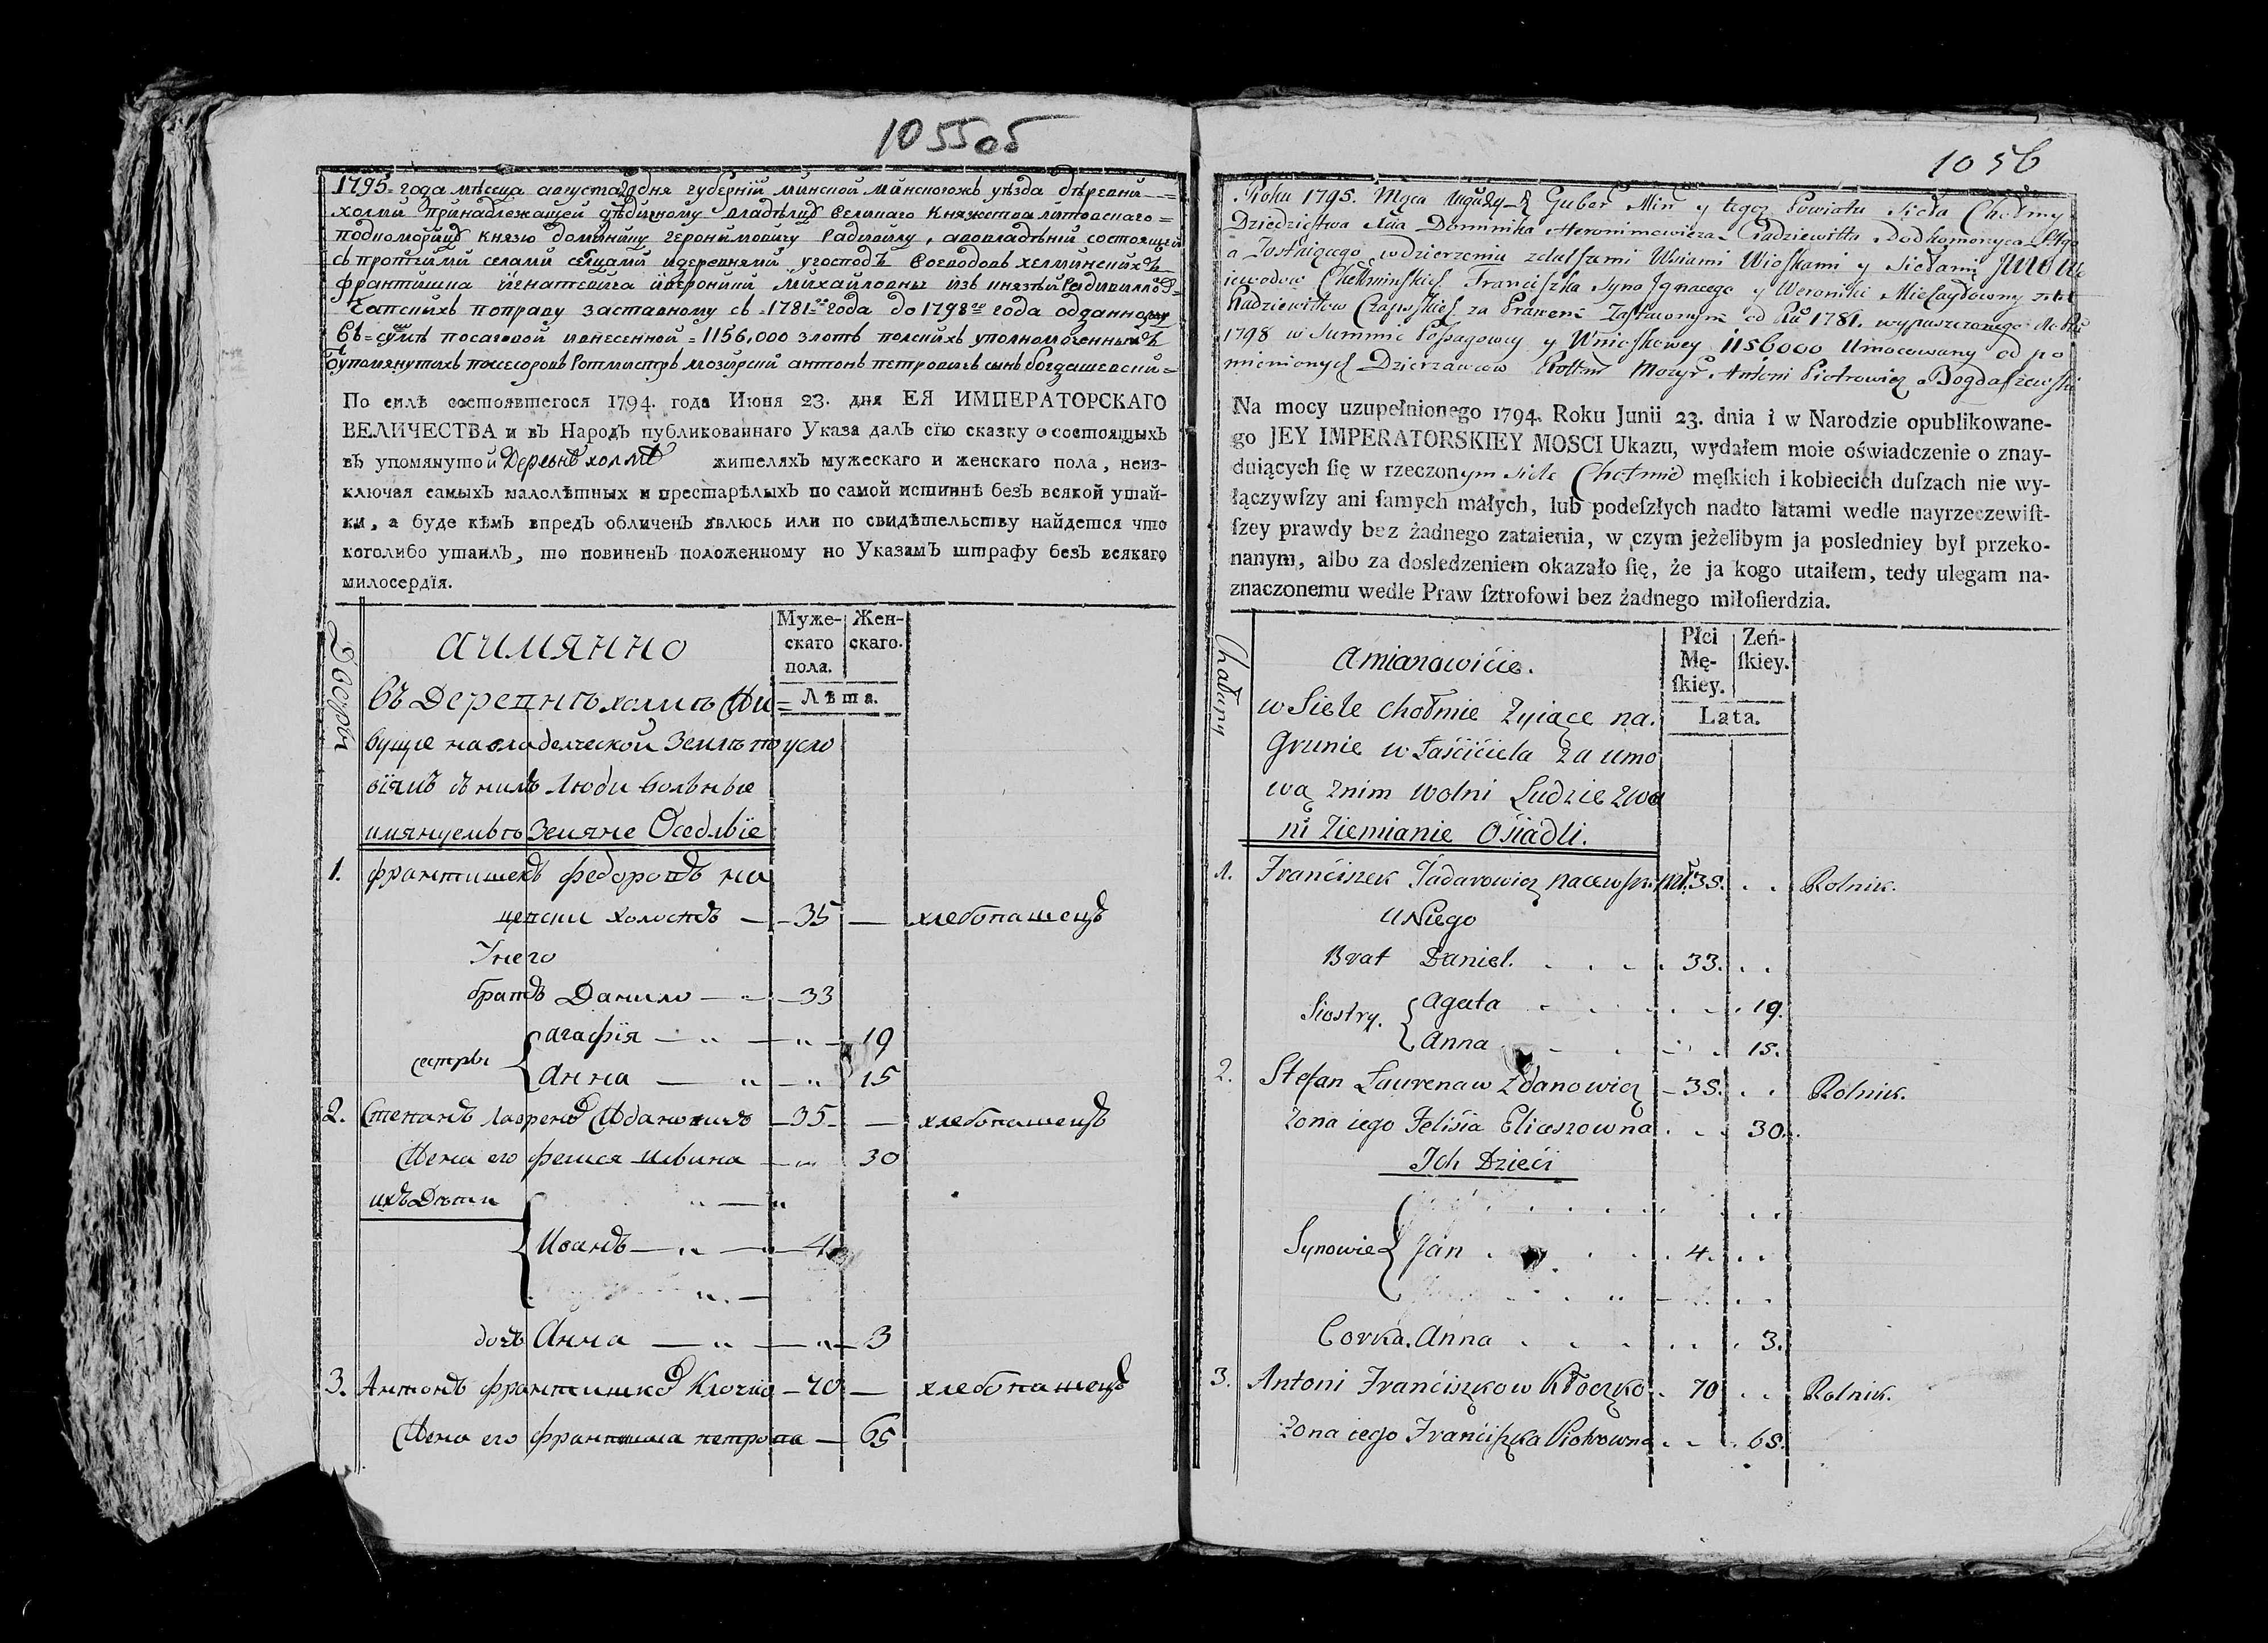 1055об
1795 года мѣсяца августа дня губернїи минской минскогожъ уѣзда дѣревни
холми принадлежащей дѣдичному владѣльцу великаго княжества литовскаго
подкоморему князю доминику геронимовичу радивилу, авовладѣнии состоящей
съ протчими селами селцами идеревнями угосподъ воеводовъ хелминскихъ
франтишка игнатевича ивероники михайловны изъ князей радивиллов
Чапскихъ поправу заставному съ 1781 го года до 1798 го года отданному
Въ сумѣ посаговой ивнесенной 1156,000 злотъ полскихъ уполномоченный
Ѿупомянутыхъ посесоровъ ротмистръ мозирский антонъ петровичъ сынъ богдашевски
По силѣ состоявшегося 1794 года Июня 23. дня ЕЯ ИМПЕРАТОРСКАГО
ВЕЛИЧЕСТВА и въ Народъ публикованнаго Указа далъ сїю сказку о состоящыхъ
въ упомянутой Деревнѣ холмѣ жителяхъ мужескаго и женскаго пола, неиз-
ключая самыхъ малолѣтныхъ и престарѣлыхъ по самой истиннѣ безъ всякой утай-
ки, а буде кѣмъ впредъ обличенъ явлюсь или по свидѣтельству найдется что
коголибо утаилъ, то повиненъ положенному по Указамъ штрафу безъ всякаго
милосердїя.
Дворы
аимянно
Муже-
скаго
пола.
Жен-
скаго.
Лѣта.
въ Деревнѣ холмѣ Жи=
вущие навладелческой Землѣ поусло
вїямъ с нимъ Люди волныые
имянуемыѣ Земяне Оседлыïе
1. франтишекъ федоровъ на
цевски холостъ — 35 — хлебопашецъ
Унего
братъ Данило — 33
сестры
агафїя — 19
Анна — 15
2. Степанъ Лавренов Жданович — 35 — хлебопашецъ
Жена его фелися илвина — 30
ихъ Дѣти
Иванъ — 4
дочь Анна — 3
3. Антонъ франтишков Клочко — 70 — хлебопашецъ
Жена его франтишка петрова — 65
1056
Roku 1795. Mca Guber Min y tegoz Powiatu Sieła Chołmy
Dziedzictwa Xcia Dominika Heronimowicza Radziewiłła Podkomorzego
a Zostaiącego w dzierzeniu zdalszemi Wsiami Wioskami y Siełami
iewodow Chełminskich Franciszka Syna Jgnacego y Weroniki Michayłowny
Radziewiłłow Czapskich za Prawem Zastawnym od Ru 1781. wypuszczonego do Ru
1798 w Summie Possagowey y Wnioskowey 1156000 Umocowany od po
mienionych Dzierzawcow Rottm Mozyr Antoni Piotrowicz Bogdaszewski
Na mocy uzupełnionego 1794. Roku Junii 23. dnia i w Narodzie opublikowane-
go JEY IMPERATORSKIEY MOSCI Ukazu, wydałem moie oświadczenie o znay-
duiących ſię w rzeczonym siele Chołmie męſkich i kobiecich duſzach nie wy-
łączywſzy ani ſamych małych, lub podeſzłych nadto latami wedle nayrzeczewiſt-
ſzey prawdy bez żadnego zataienia, w czym jeżelibym ja posledniey był przeko-
nanym, albo za dosledzeniem okazało ſię, że ja kogo utaiłem, tedy ulegam na-
znaczonemu wedle Praw ſztrofowi bez żadnego miłoſierdzia.
Chałupy
Amianowićie.
Płci
Mę-
ſkiey.
Zeń-
ſkiey.
Lata.
w Siele chołmie Zyiące na.
Grunie właśćićiela za umo
wą znim wolni Ludzie zwa
ni Ziemianie Ośiadli.
1. Franćiszek Tadarowicz nacewski 35. Rolnik.
u Niego
Brat Daniel. 33.
Siostry.
Agata 19.
Anna 15.
2. Stefan Laurenaw Zdanowicz 35. Rolnik.
Zona iego Feliśia Eliaszowna 30.
Ich Dzieći
Synowie Jan 4.
Corka. Anna 3.
3. Antoni Franćiszkow Kłoczko 70 Rolnik.
Zona iego Franćiszka Piotrowna 65.